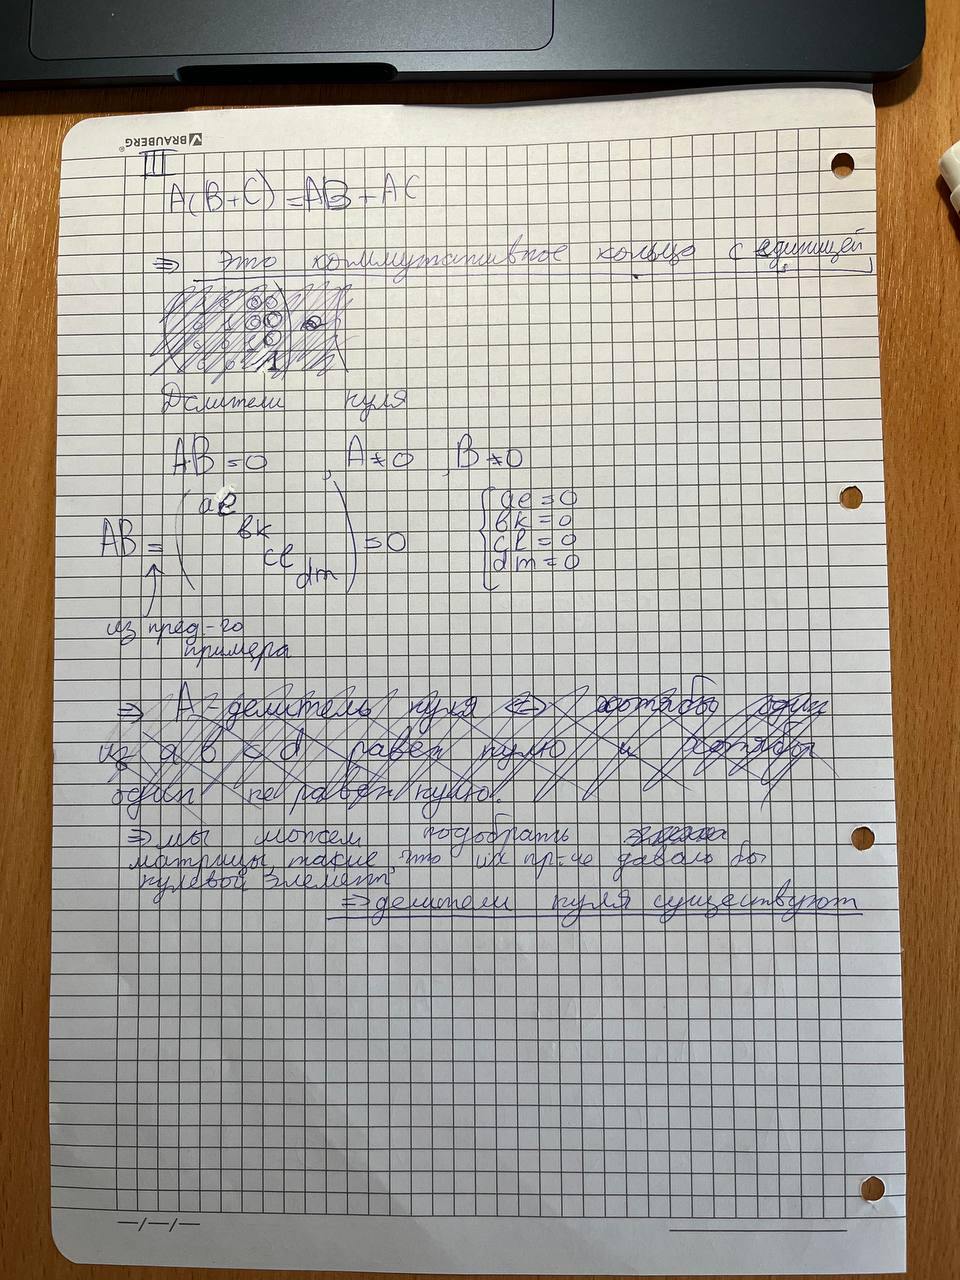 BRAUBERG®
III
A(B+C) = AB + AC
⇒ Это коммутативное кольцо с единицей
Делители нуля
A·B = 0 , A ≠ 0 , B ≠ 0
AB = (ae вк cl dm) = 0
{ ae = 0
вк = 0
cl = 0
dm = 0
из пред-го
примера
⇒ A - делитель нуля ⇔ хотябы один
из a в c d равен нулю и хотябы
один не равен нулю.
⇒ мы можем подобрать
матрицы такие, что их пр-ие давало бы
нулевой элемент,
⇒ делители нуля существуют